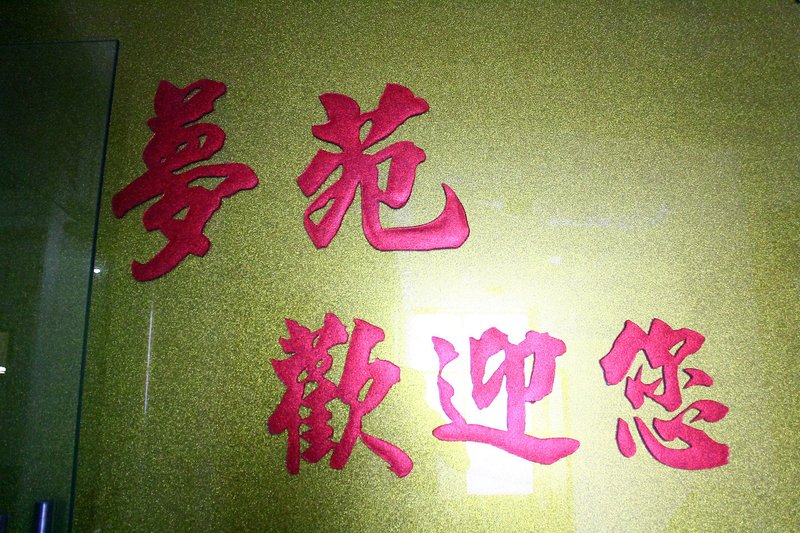 夢苑
歡迎您